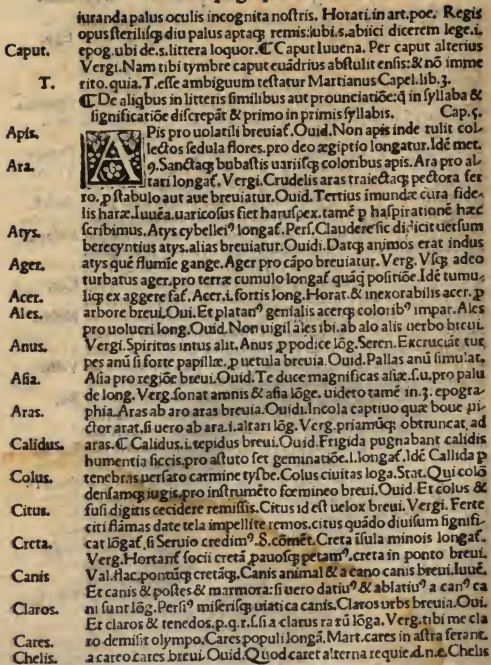 iuranda palus oculis incognita nostris. Horati. in art. poe. Regis
opus sterilisq; diu palus aptaq; remis: ubi. s. abiici dicerem lege. i.
Caput. epog. ubi de. s. littera loquor. ¶ Caput Iuuena. Per caput alterius
Vergi. Nam tibi tymbre caput euādrius abstulit ensis: & nō imme
T. rito. quia. T. esse ambiguum testatur Martianus Capel. lib. 3.
¶ De aliqbus in litteris similibus aut prounciatiōe: q in syllaba &
significatiōe discrepāt & primo in primis syllabis. Cap. 5.
Apis. APis pro uolatili breuiat. Ouid. Non apis inde tulit col-
lectos sedula flores. pro deo ægiptio longatur. Idē met.
Ara. 9. Sanctaq; bubastis uariisq; coloribus apis. Ara pro al-
tari longat. Vergi. Crudelis aras traiectaq; pectora fer
ro. p stabulo aut aue breuiatur. Ouid. Tertius imundæ cura fide-
lis haræ. Iuuēa. uaricosus fiet haruspex. tamē p haspirationē hæc
Atys. scribimus. Atys cybellei9 longat. Pers. Claudere sic dicit uersum
berecyntius atys. alias breuiatur. Ouidi. Datq; animos erat indus
Ager. atys quē flumīe gange. Ager pro cāpo breuiatur. Verg. Vsq; adeo
turbatus ager. pro terræ cumulo longat quāq positiōe. Idē tumu-
Acer. liq; ex aggere fat. Acer. i. fortis long. Horat. & inexorabilis acer. p
Ales. arbore breui. Oui. Et platan9 genialis acerq; colorib9 impar. Ales
pro uolucri long. Ouid. Non uigil ales ibi. ab alo alis uerbo breui.
Anus. Vergi. Spiritus intus alit. Anus p podice lōg. Seren. Excruciāt tur
pes anū si forte papillæ. p uetula breuia. Ouid. Pallas anū simulat.
Asia. Asia pro regiōe breui. Ouid. Te duce magnificas asiæ. s. u. pro palu
de long. Verg. sonat amnis & asia lōge. uideto tamē in. 3. epogra-
Aras. phia. Aras ab aro aras breuia. Ouidi. Incola captiuo quæ boue ui-
ctor arat. si uero ab ara. i. altari lōg. Verg. priamūq; obtruncat ad
Calidus. aras. ¶ Calidus. i. tepidus breui. Ouid. Frigida pugnabant calidis
humentia siccis. pro astuto fet geminatiōe. l. longat. Idē Callida p
Colus. tenebras uersato carmine tysbe. Colus ciuitas lōga. Stat. Qui colō
densamq; iugis. pro instrumēto fœmineo breui. Ouid. Et colus &
Citus. fusi digitis cecidere remissis. Citus id est uelox breui. Vergi. Ferte
citi flāmas date tela impellite remos. citus quādo diuisum signifi-
Creta. cat lōgat. si Seruio credim9. S. cōmēt. Creta īsula minois longat.
Verg. Hortant socii cretā pauosq; petam9. creta in ponto breui.
Canis Val. flac. pontūq; cretāq;. Canis animal & a cano canis breui. Iuuē.
Et canis & postes & marmora: si uero datiu9 & ablatiu9 a can9 ca
ni sunt lōg. Persi9 miserisq; uiatica canis. Claros urbs breuia. Oui.
Claros. Et claros & tenedos. p. q. r. s. si a clarus ra rū lōga. Verg. tibi me cla
Cares. ro demisit olympo. Cares populi longā. Mart. cares in astra ferant.
Chelis. a careo cares breui. Ouid. Quod caret alterna requie. d. n. e. Chelis